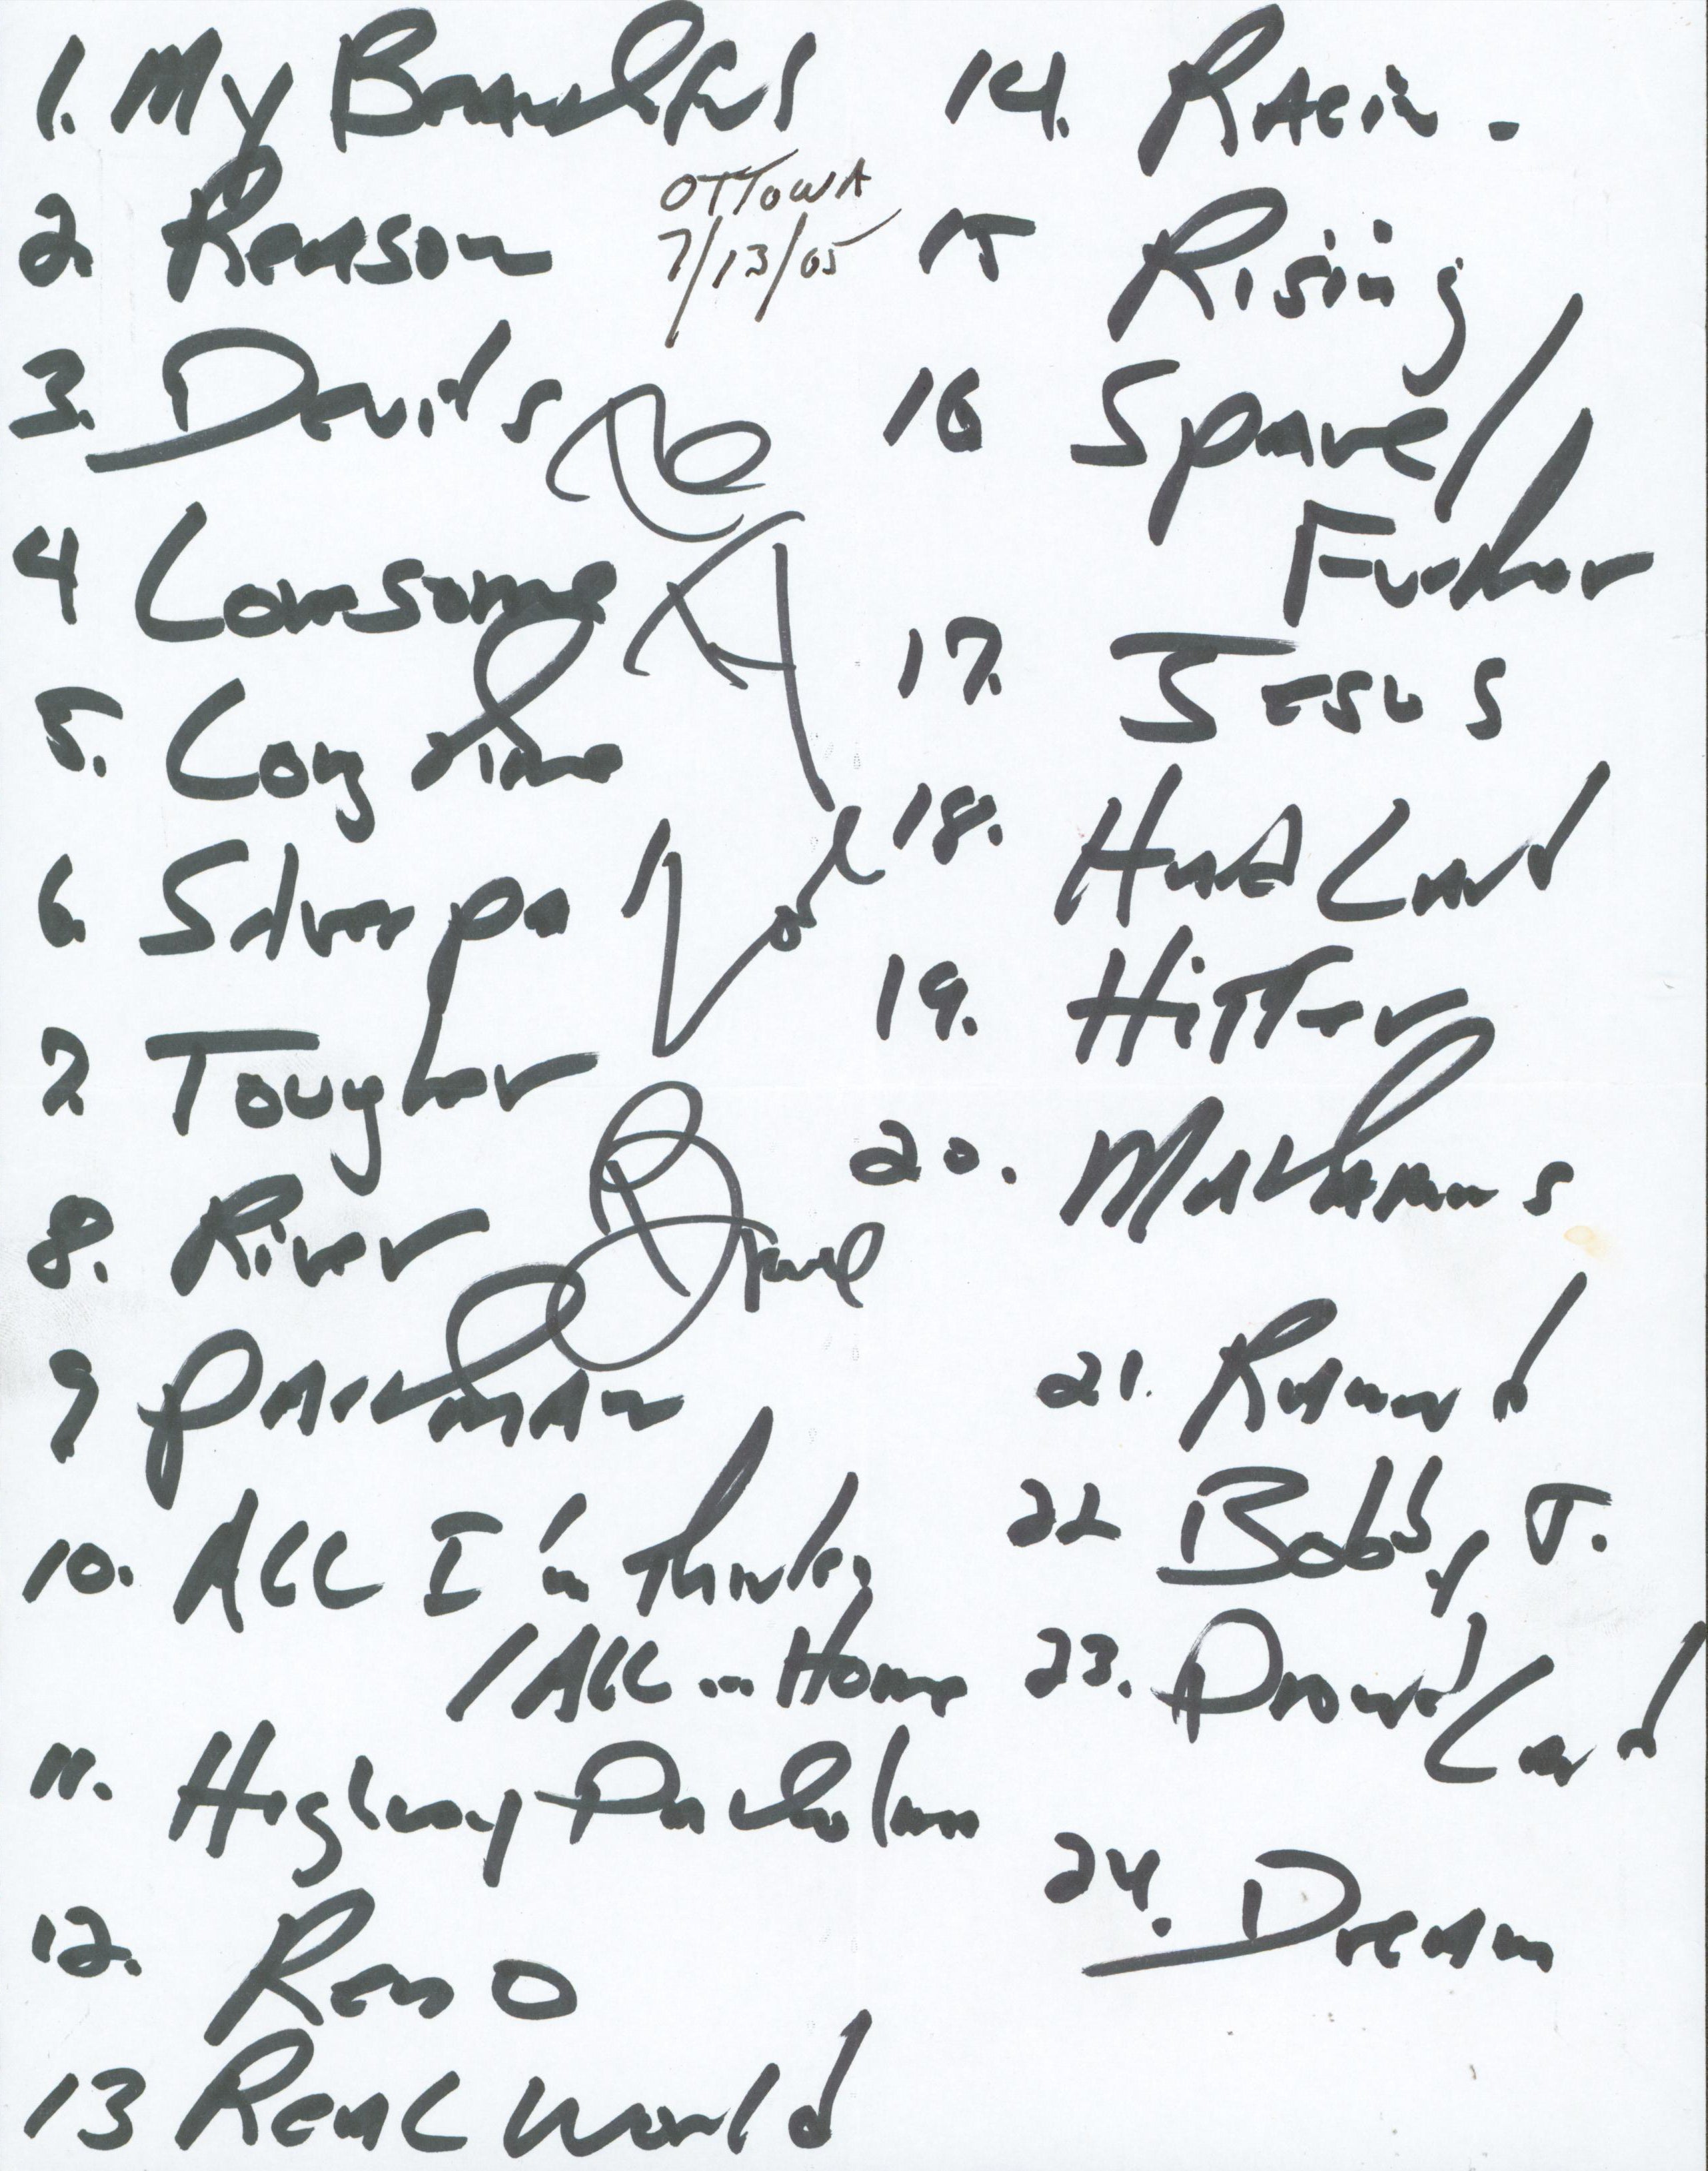 1. My Beautiful
OTTOWA
7/13/05
2. Reason
3. Devils
4 Lonesome
5. Long time
6. Silver pa
7 Tougher
8. River
9 Parkman
10. ALL I'm Thinkin
/ALL ... Home
11. Highway Patrolman
12. Reno
13 Real World
14. Racin.
15 Rising
16 Spare/
Further
17. JESUS
18. Hard Land
19. Hitter
20. Matamoros
21. Ramrod
22 Bobby J.
23. Promised Land
24. Dream